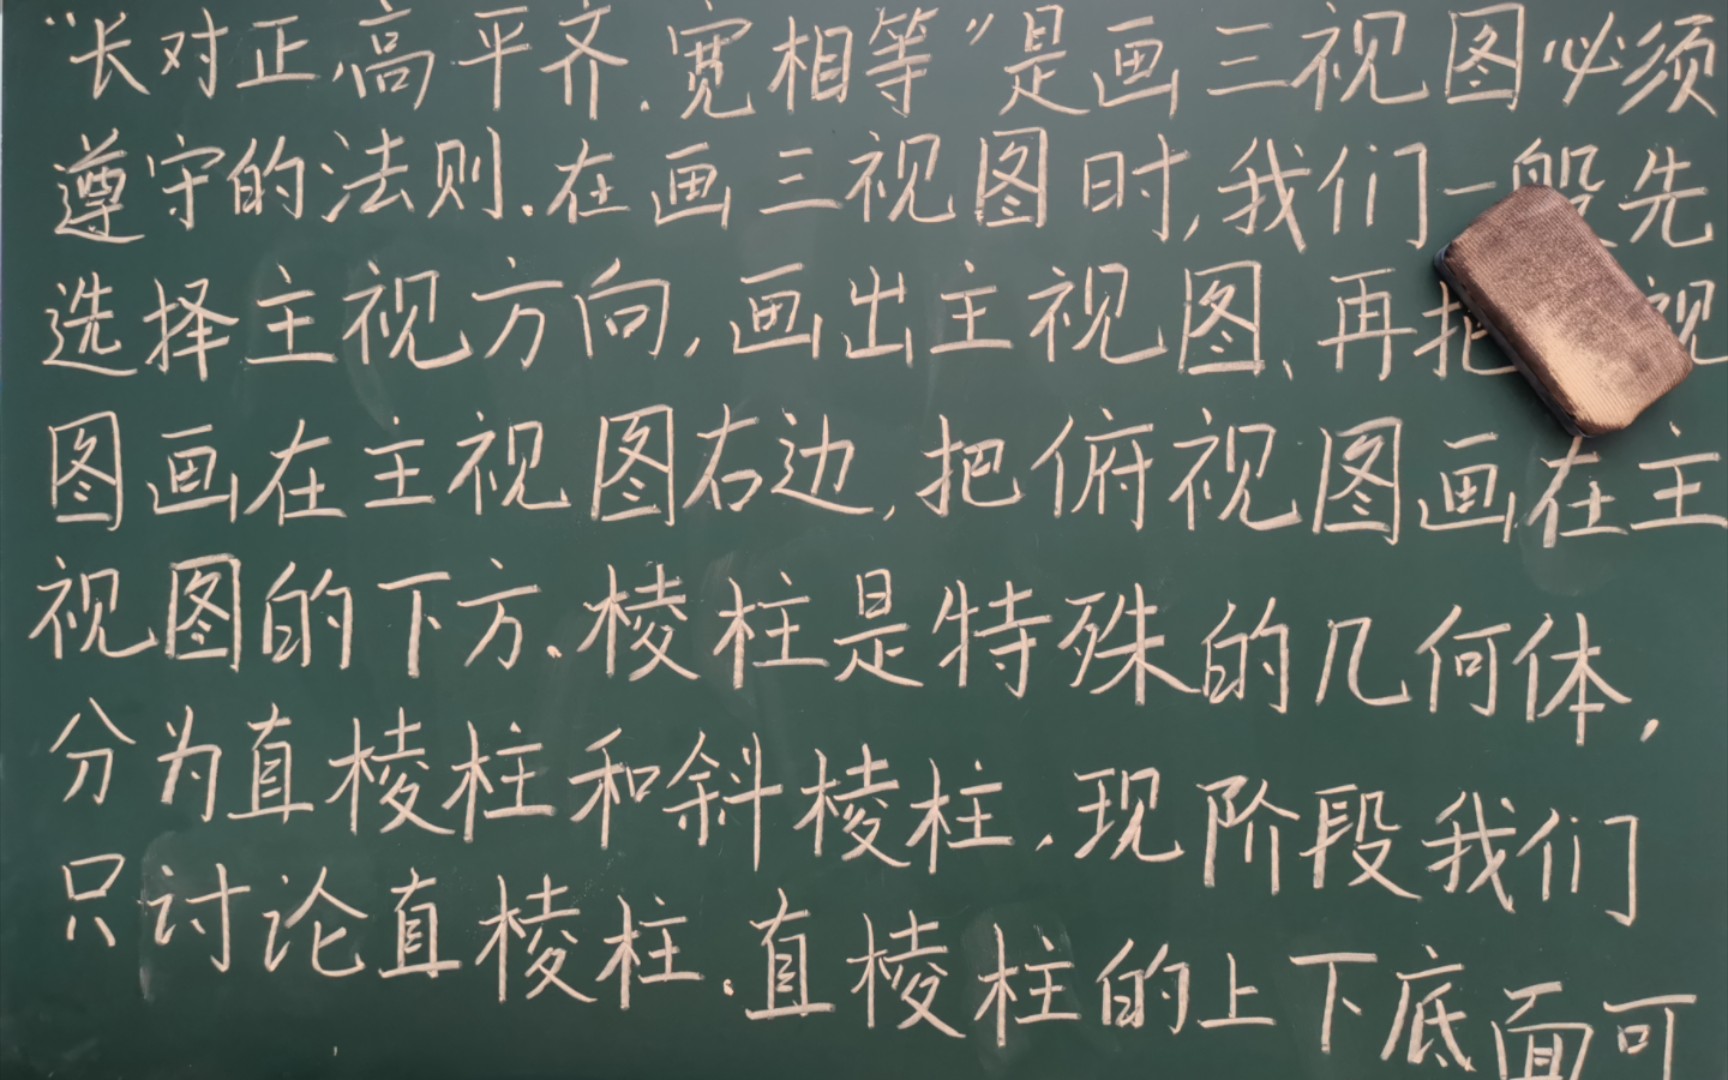 “长对正.高平齐.宽相等”是画三视图必须
遵守的法则.在画三视图时,我们一般先
选择主视方向,画出主视图、再把视
图画在主视图右边,把俯视图画在主
视图的下方.棱柱是特殊的几何体,
分为直棱柱和斜棱柱.现阶段我们
只讨论直棱柱.直棱柱的上下底面可